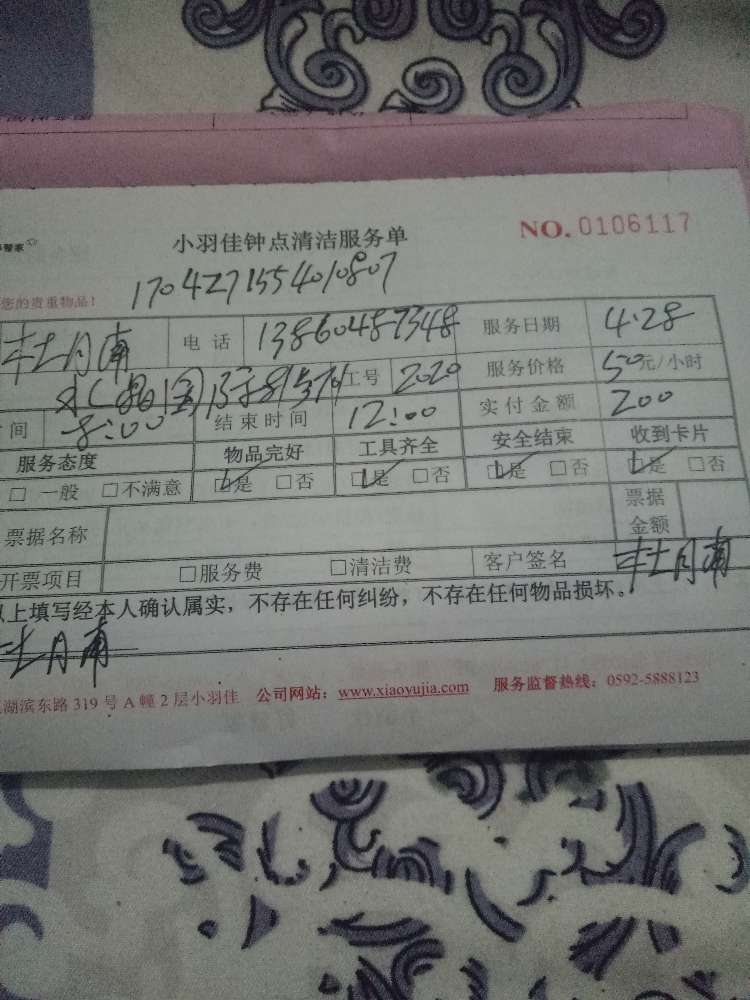 小羽佳钟点清洁服务单 NO. 0106117
1704271554010807
您的贵重物品！
杜月南 电话 13860487348 服务日期 4.28
工号 2020 服务价格 50元/小时
间 8:00 结束时间 12:00 实付金额 200
服务态度 物品完好 工具齐全 安全结束 收到卡片
□ 一般 □不满意 □是 □否 □是 □否 □是 □否 □是 □否
票据名称 票据金额
开票项目 □服务费 □清洁费 客户签名 杜月南
以上填写经本人确认属实，不存在任何纠纷，不存在任何物品损坏。
杜月南
湖滨东路 319 号 A 幢 2 层小羽佳 公司网站：www.xiaoyujia.com 服务监督热线：0592-5888123